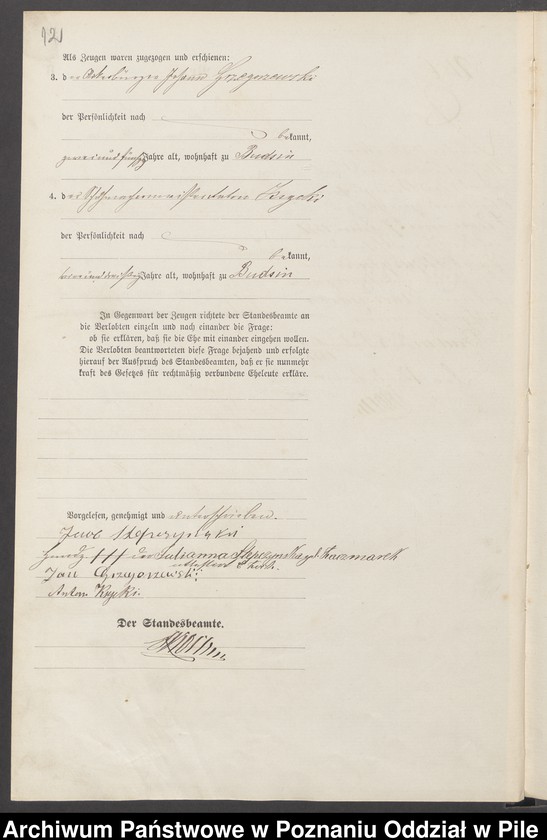 121
Als Zeugen waren zugezogen und erschienen:
3. der Ackerbürger Johann Grzegorzewski
der Persönlichkeit nach
bekannt,
zweiundfünfzig Jahre alt, wohnhaft zu Budsin
4. der Anton Kryski
der Persönlichkeit nach
bekannt,
Jahre alt, wohnhaft zu Budsin
In Gegenwart der Zeugen richtete der Standesbeamte an
die Verlobten einzeln und nach einander die Frage:
ob sie erklären, daß sie die Ehe mit einander eingehen wollen.
Die Verlobten beantworteten diese Frage bejahend und erfolgte
hierauf der Ausspruch des Standesbeamten, daß er sie nunmehr
kraft des Gesetzes für rechtmäßig verbundene Eheleute erkläre.
Vorgelesen, genehmigt und unterschrieben.
Handz. +++ der Julianna geb. Kaczmarek
Jan Grzegorzewski
Anton
Der Standesbeamte.
Archiwum Państwowe w Poznaniu Oddział w Pile